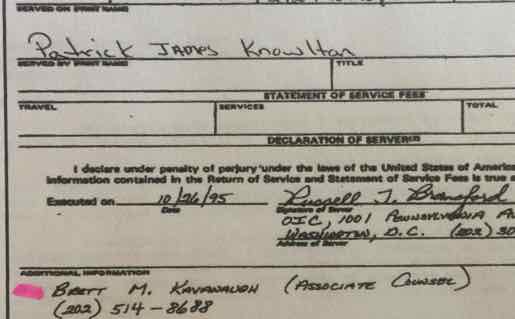 SERVED ON (PRINT NAME)
Patrick James Knowlton
SERVED BY (PRINT NAME) TITLE
STATEMENT OF SERVICE FEES
TRAVEL SERVICES TOTAL
DECLARATION OF SERVER
I declare under penalty of perjury under the laws of the United States of America
information contained in the Return of Service and Statement of Service Fees is true
Executed on 10/26/95 Russell T. Bransford
Date Signature of Server
OIC, 1001 PENNSYLVANIA
WASHINGTON, D.C. (202)
Address of Server
ADDITIONAL INFORMATION
BRETT M. KAVANAUGH (ASSOCIATE COUNSEL)
(202) 514-8688